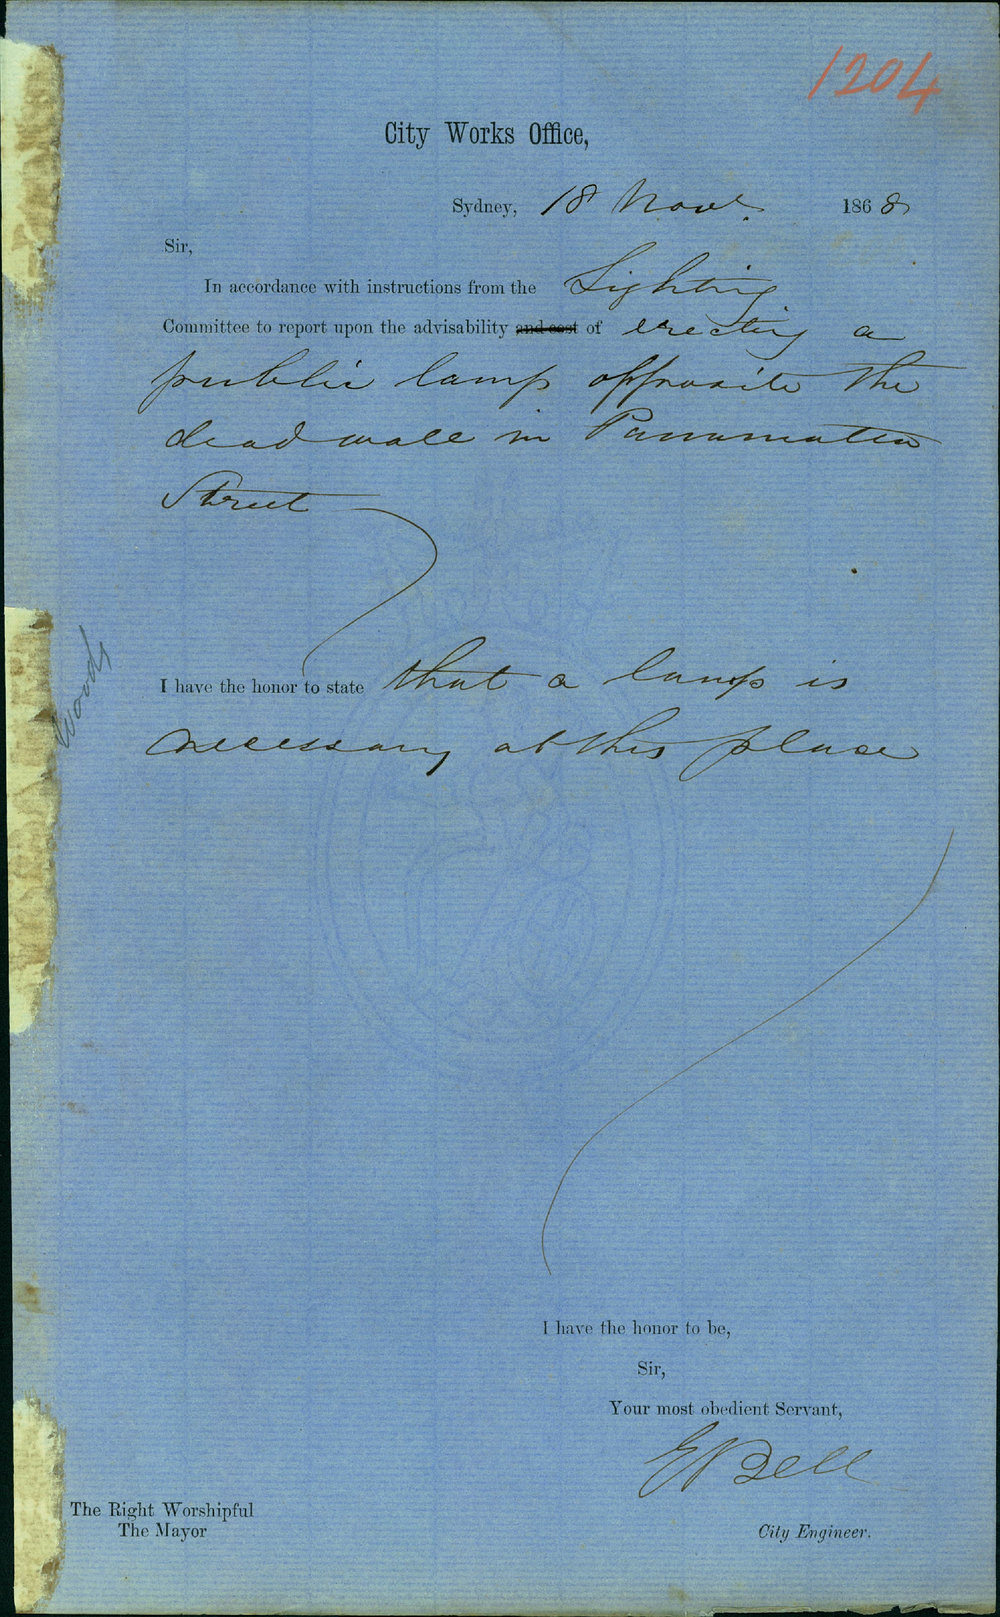 1204
City Works Office,
Sydney, 18 Novr. 1868
Sir,
In accordance with instructions from the Lighting
Committee to report upon the advisability and cost of erecting a
public lamp opposite the
dead wall in Parramatta
Street
woods
I have the honor to state that a lamp is
necessary at this place
I have the honor to be,
Sir,
Your most obedient Servant,
E Bell
The Right Worshipful
The Mayor
City Engineer.